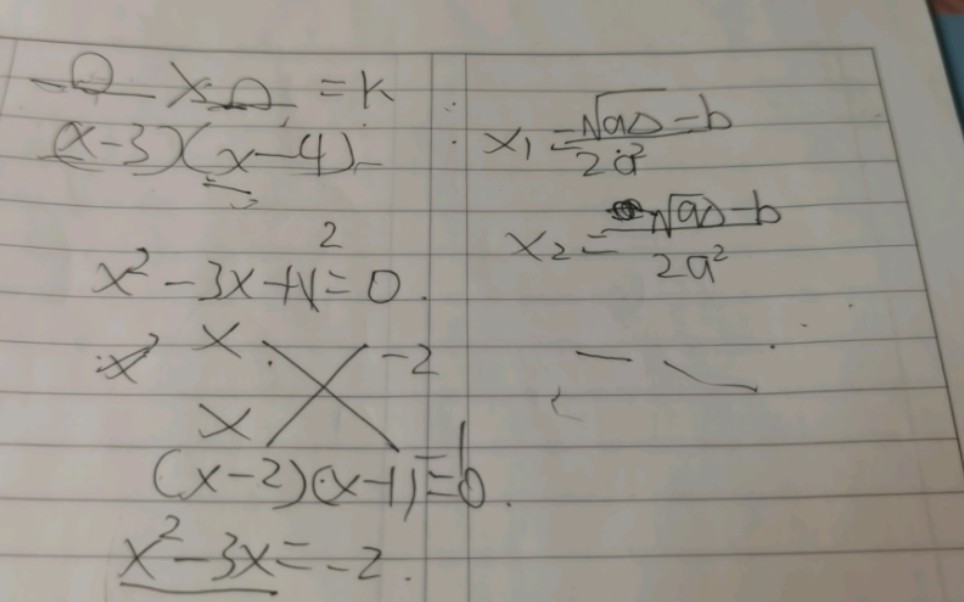 × = K
(x-3)(x-4)
2
x² - 3x + 1 = 0.
x
x² -2
x
(x-2)(x-1)=0.
x² - 3x = -2.
x₁ = -√a - b
2a²
x₂ = √a - b
2a²